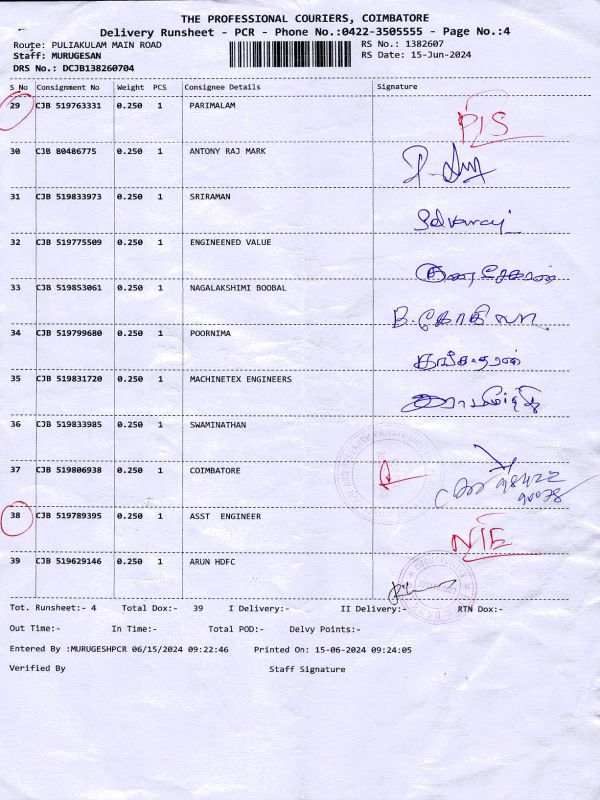 THE PROFESSIONAL COURIERS, COIMBATORE
Delivery Runsheet - PCR - Phone No.:0422-3505555 - Page No.:4
Route: PULIAKULAM MAIN ROAD RS No.: 1382607
Staff: MURUGESAN RS Date: 15-Jun-2024
DRS No.: DCJB138260704
S No Consignment No Weight PCS Consignee Details Signature
29 CJB 519763331 0.250 1 PARIMALAM
30 CJB 80486775 0.250 1 ANTONY RAJ MARK
31 CJB 519833973 0.250 1 SRIRAMAN Selvaraj
32 CJB 519775509 0.250 1 ENGINEENED VALUE குணசேகரன்
33 CJB 519853061 0.250 1 NAGALAKSHIMI BOOBAL B. கோகிலா
34 CJB 519799680 0.250 1 POORNIMA
35 CJB 519831720 0.250 1 MACHINETEX ENGINEERS
36 CJB 519833985 0.250 1 SWAMINATHAN
37 CJB 519806938 0.250 1 COIMBATORE
38 CJB 519789395 0.250 1 ASST ENGINEER
39 CJB 519629146 0.250 1 ARUN HDFC
Tot. Runsheet:- 4 Total Dox:- 39 I Delivery:- II Delivery:- RTN Dox:-
Out Time:- In Time:- Total POD:- Delvy Points:-
Entered By :MURUGESHPCR 06/15/2024 09:22:46 Printed On: 15-06-2024 09:24:05
Verified By Staff Signature